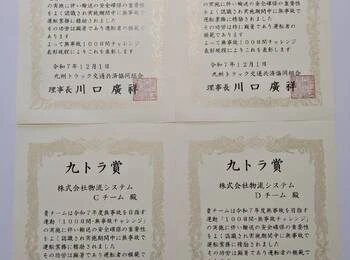 の実施に伴い輸送の安全確保の重要性
をよく認識され実施期間中に無事故で
運転業務に精励されました
その功労は顕著であり運転者の模範で
あります
よって無事故100日間チャレンジ
これを表彰します
令和7年12月1日
九州トラック交通共済協同組合
理事長 川口 廣祥
の実施に伴い輸送の安全確保の重要性
をよく認識され実施期間中に無事故で
運転業務に精励されました
その功労は顕著であり運転者の模範で
あります
よって無事故100日間チャレンジ
によりこれを表彰します
令和7年12月1日
九州トラック交通共済協同組合
理事長 川口 廣祥
九トラ賞
株式会社物流システム
Cチーム 殿
貴チームは令和7年度無事故を目指す
運動「100日間・無事故チャレンジ」
の実施に伴い輸送の安全確保の重要性
をよく認識され実施期間中に無事故で
運転業務に精励されました
その功労は顕著であり運転者の模範で
九トラ賞
株式会社物流システム
Dチーム 殿
貴チームは令和7年度無事故を目指す
運動「100日間・無事故チャレンジ」
の実施に伴い輸送の安全確保の重要性
をよく認識され実施期間中に無事故で
運転業務に精励されました
その功労は顕著であり運転者の模範で